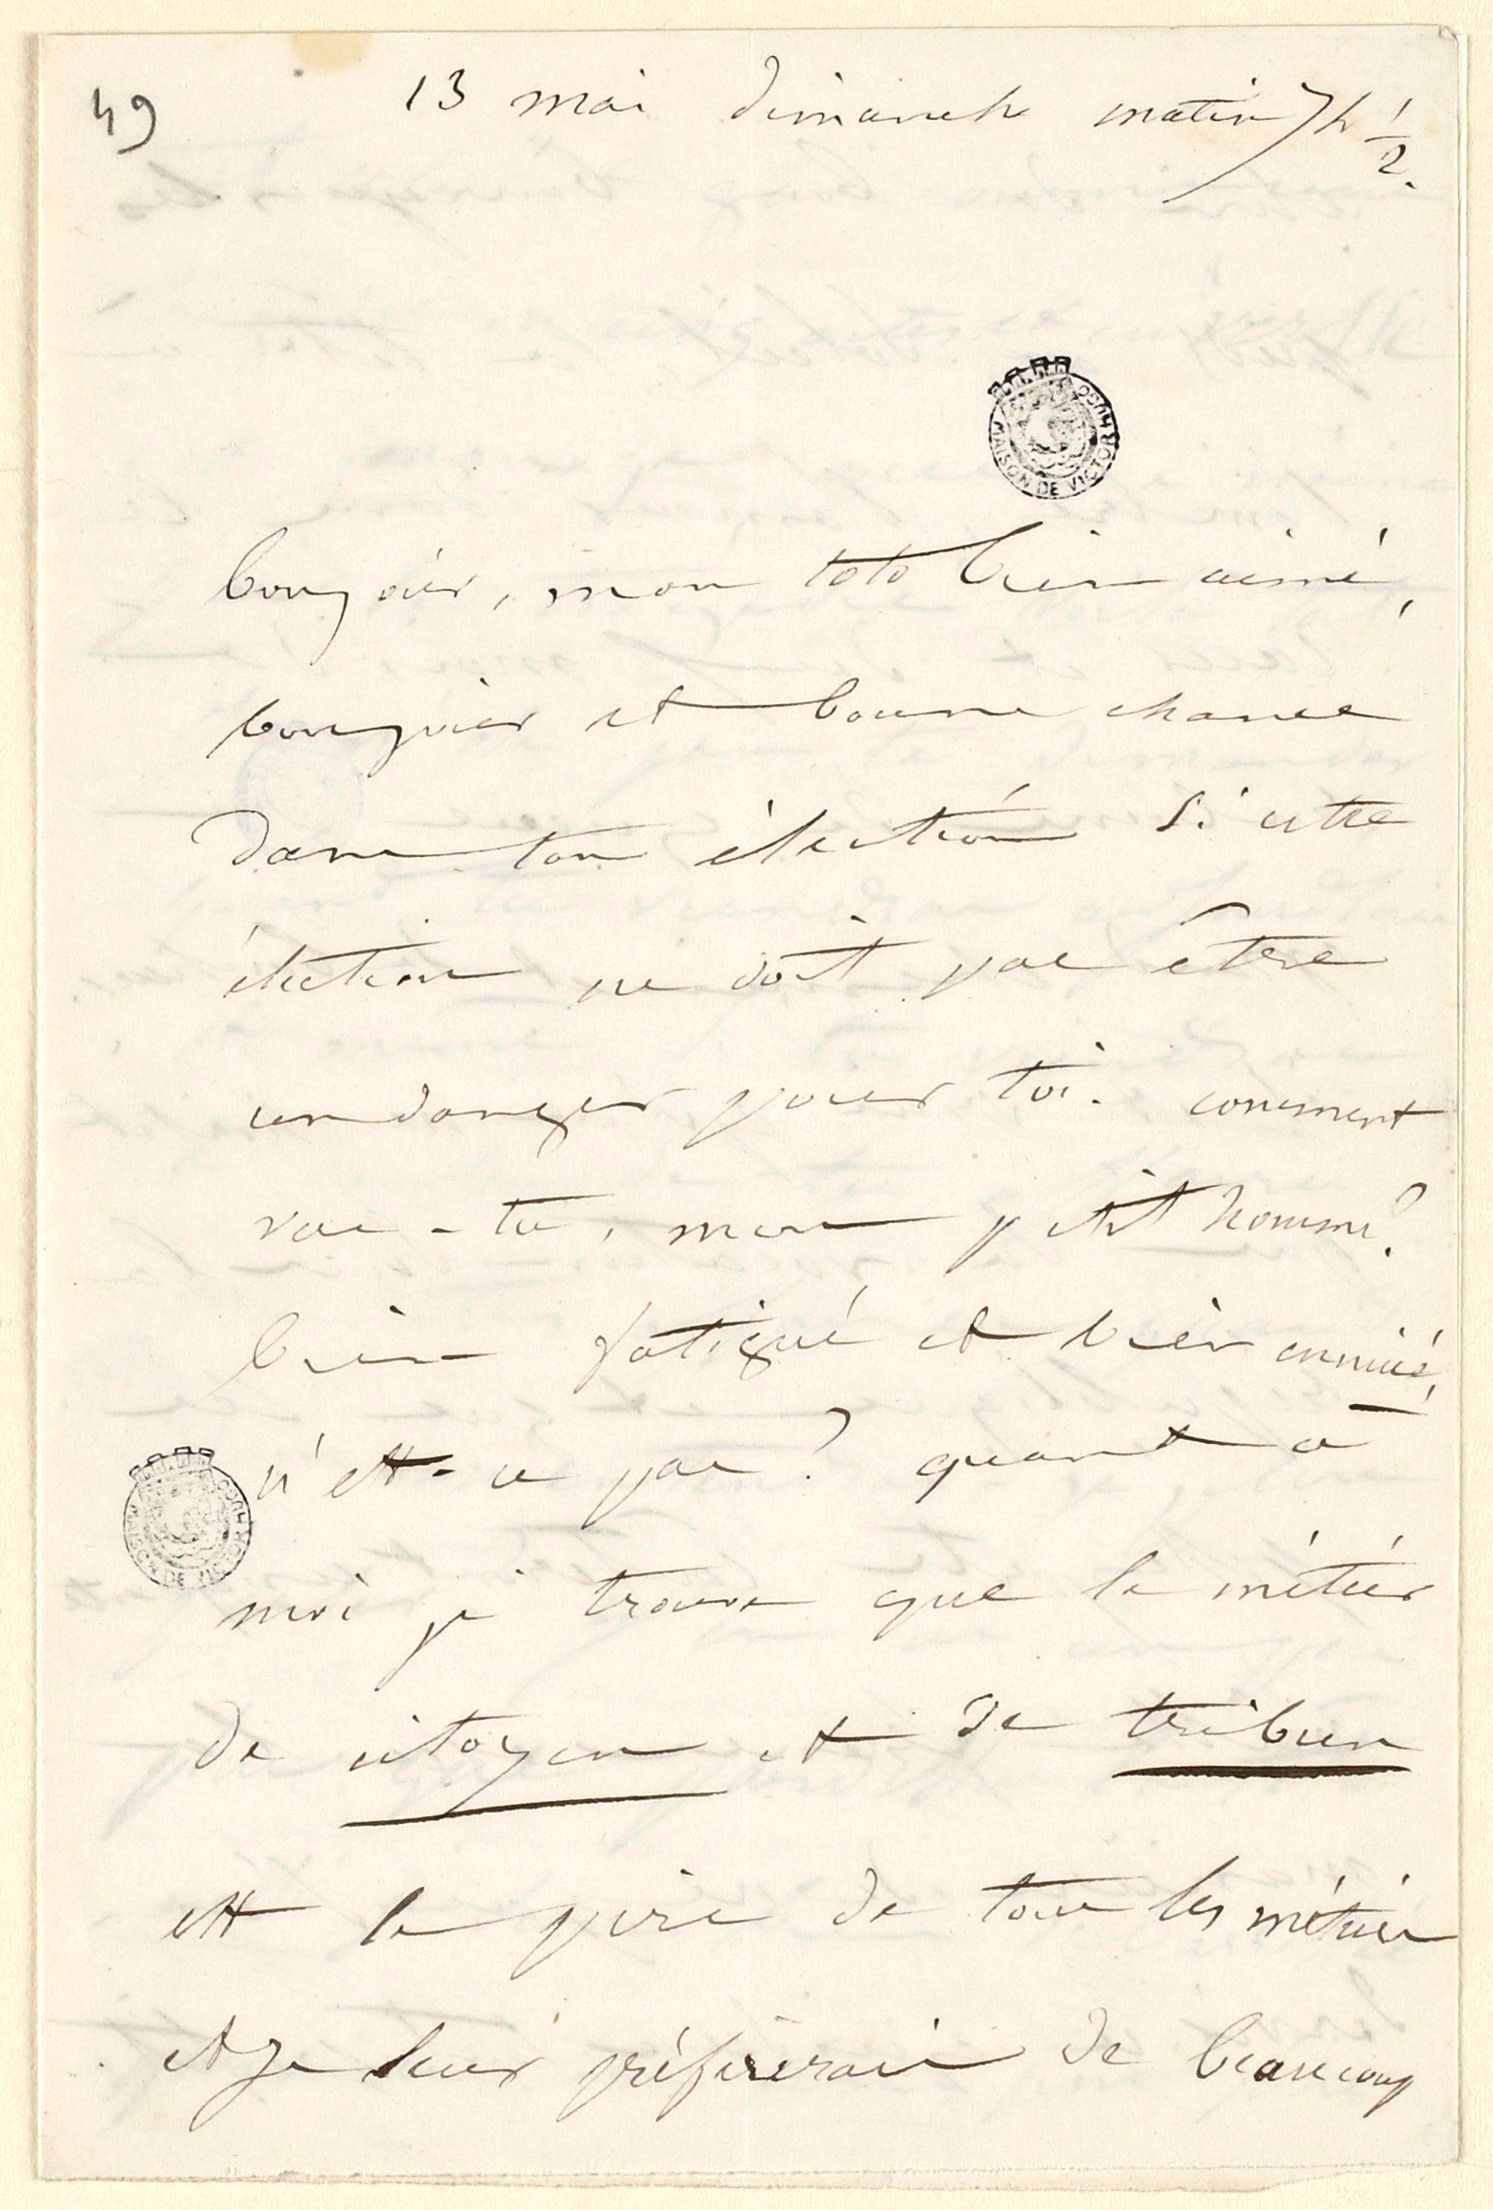 49
13 mai dimanche matin 7h ½.
MAISON DE VICTOR HUGO
bonjour, mon toto bien aimé,
bonjour et bonne chance
dans ton élection si cette
élection ne doit pas être
un danger pour toi. comment
vas-tu, mon petit homme?
bien fatigué et bien ennuié,
n'est-ce pas? quant à
MAISON DE VICTOR HUGO
moi je trouve que le métier
de citoyen et de tribun
est le pire de tous les métiers
et je leur préfèrerais de beaucoup